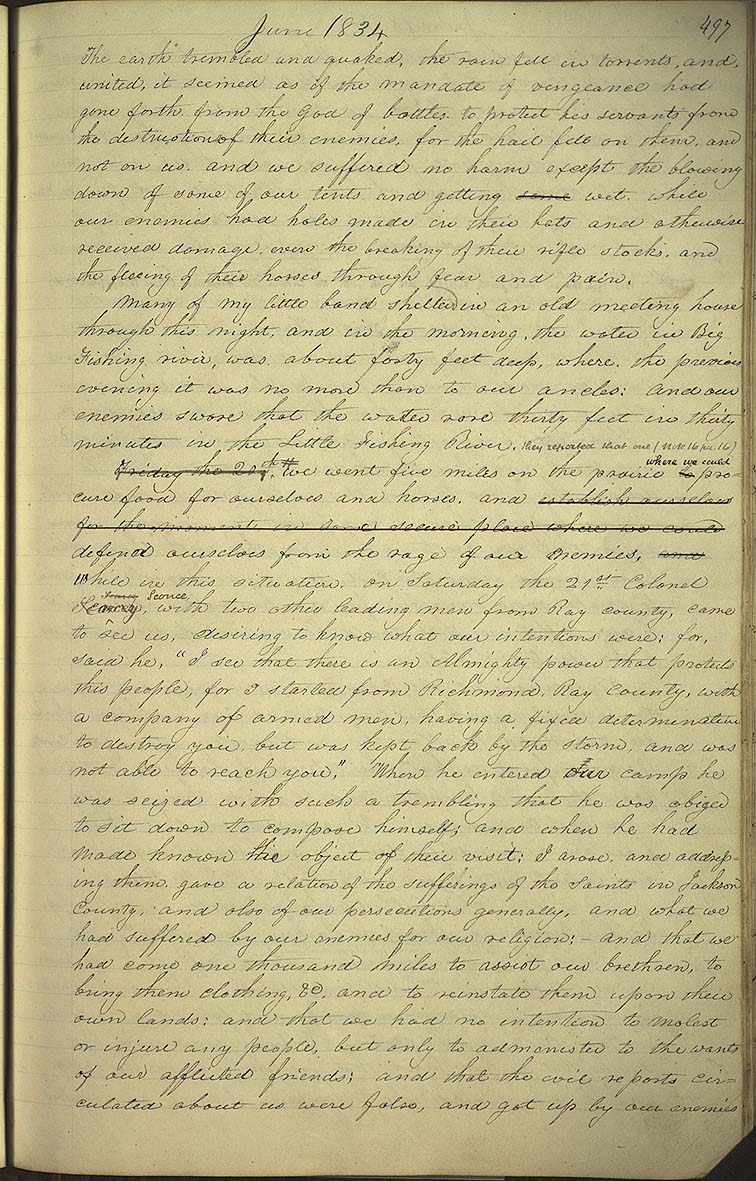 June 1834
497
The earth trembled and quaked, the rain fell in torrents, and,
united, it seemed as if the mandate of vengeance had
gone forth from the God of battles to protect his servants from
the destruction of their enemies, for the hail fell on them, and
not on us. and we suffered no harm except the blowing
down of some of our tents and getting some wet. while
our enemies had holes made in their hats and otherwise
received damage. even the breaking of their rifle stocks. and
the fleeing of their horses through fear and pain.
Many of my little band sheltered in an old meeting house
through this night, and in the morning, the water in Big
Fishing river, was about forty feet deep, where, the previous
evening it was no more than to our ancles: and our
enemies swore that the water rose thirty feet in thirty
minutes in the Little Fishing River. They reported that one (Note 16 pa. 16)
Friday the 20th we went five miles on the prairie to where we could pro=
cure food for ourselves and horses, and establish ourselves
for the moment in some secure place where we could
defend ourselves from the rage of our enemies, and
While in this situation, on Saturday the 21st. Colonel
Sconce, with two other leading men from Ray county, came
to see us, desiring to know what our intentions were; for,
said he, "I see that there is an Almighty power that protects
this people, for I started from Richmond, Ray County, with
a company of armed men, having a fixed determination
to destroy you, but was kept back by the storm, and was
not able to reach you." When he entered our camp he
was seized with such a trembling that he was obiged
to sit down to compose himself; and when he had
made known the object of their visit; I arose, and address=
ing them, gave a relation of the sufferings of the Saints in Jackson
County, and also of our persecutions generally, and what we
had suffered by our enemies for our religion; – and that we
had come one thousand miles to assist our brethren, to
bring them clothing, &c, and to reinstate them upon their
own lands: and that we had no intention to molest
or injure any people, but only to administer to the wants
of our afflicted friends; and that the evil reports cir=
culated about us were false, and got up by our enemies